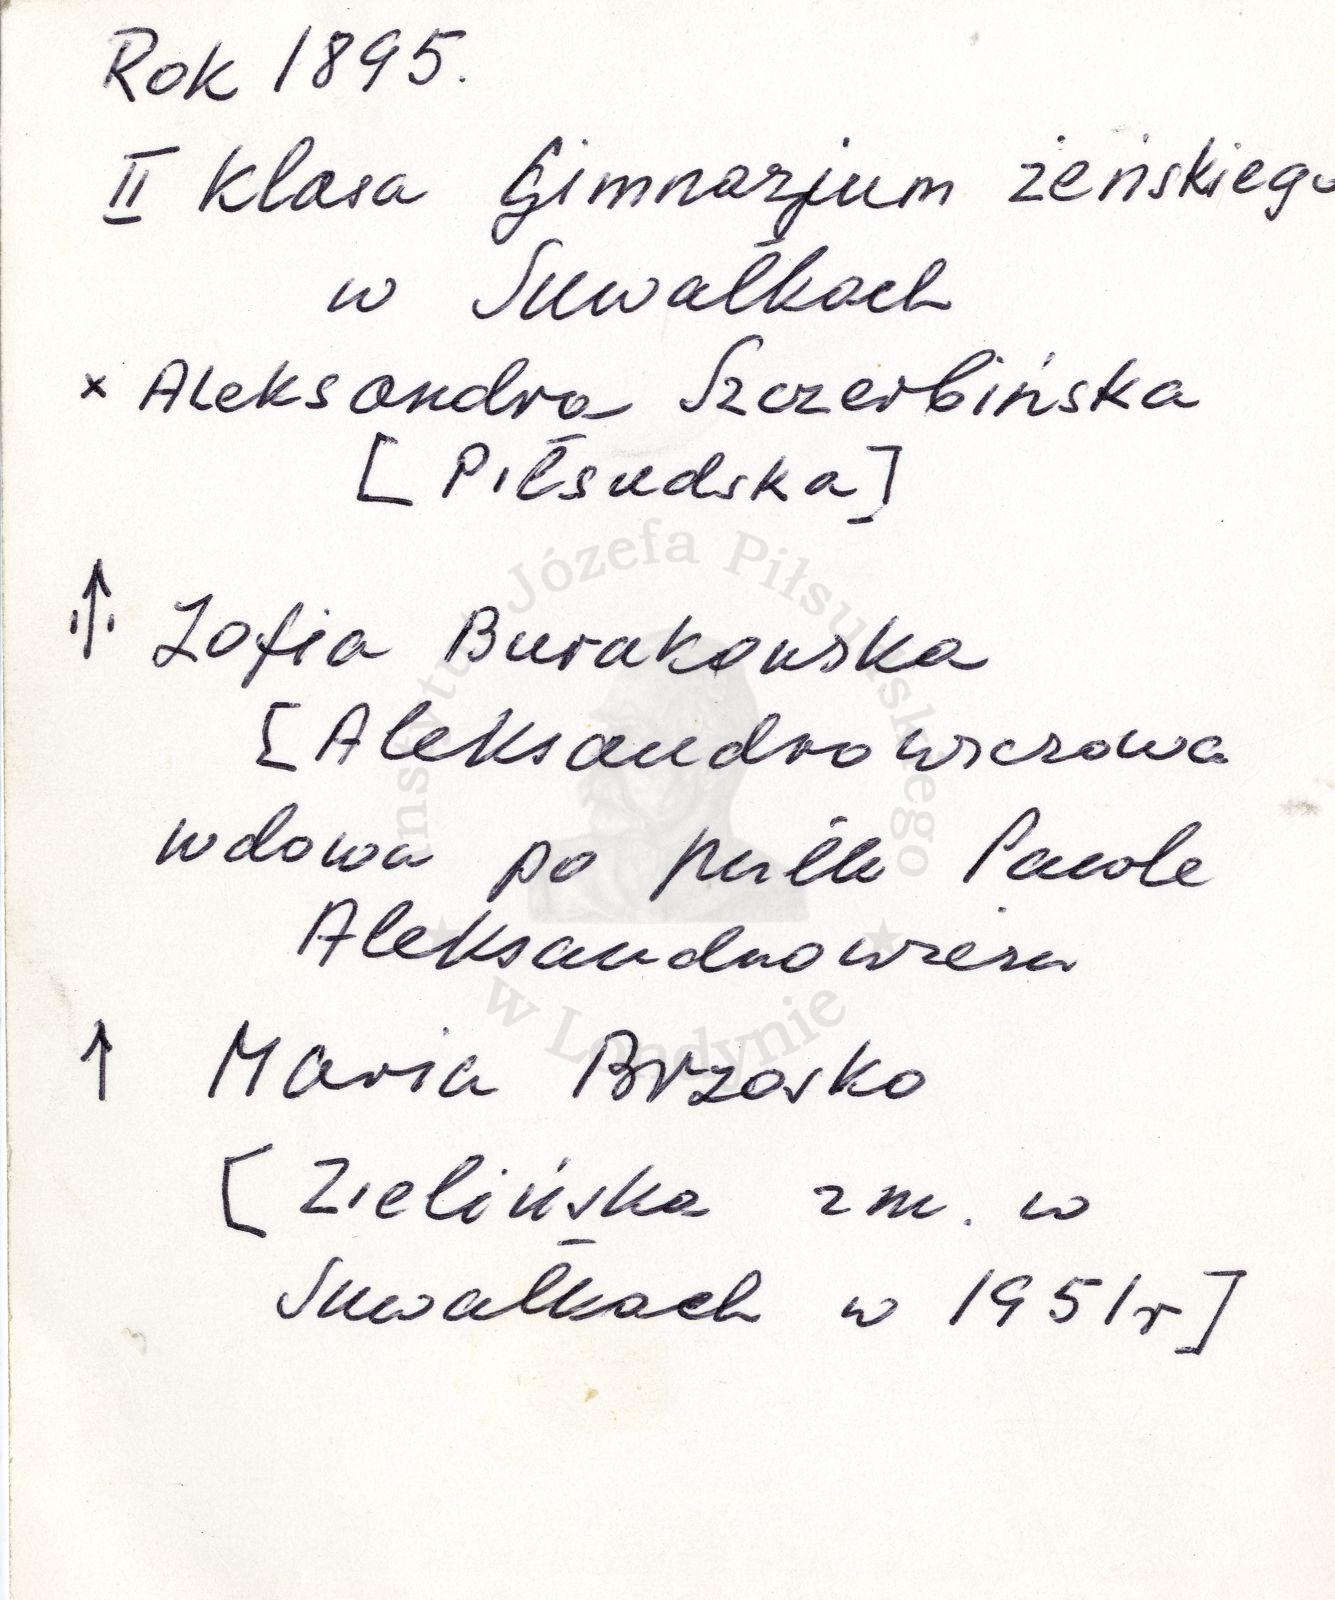 Rok 1895.
II klasa Gimnazjum żeńskiego
w Suwałkach
x Aleksandra Szczerbińska
[Piłsudska]
↑ Zofia Burakowska
[Aleksandrowiczowa
wdowa po pułk Pawle
Aleksandrowiczu
↑ Maria Brzosko
[Zielińska zm. w
Suwałkach w 1951r]
Instytut Józefa Piłsudskiego
w Londynie